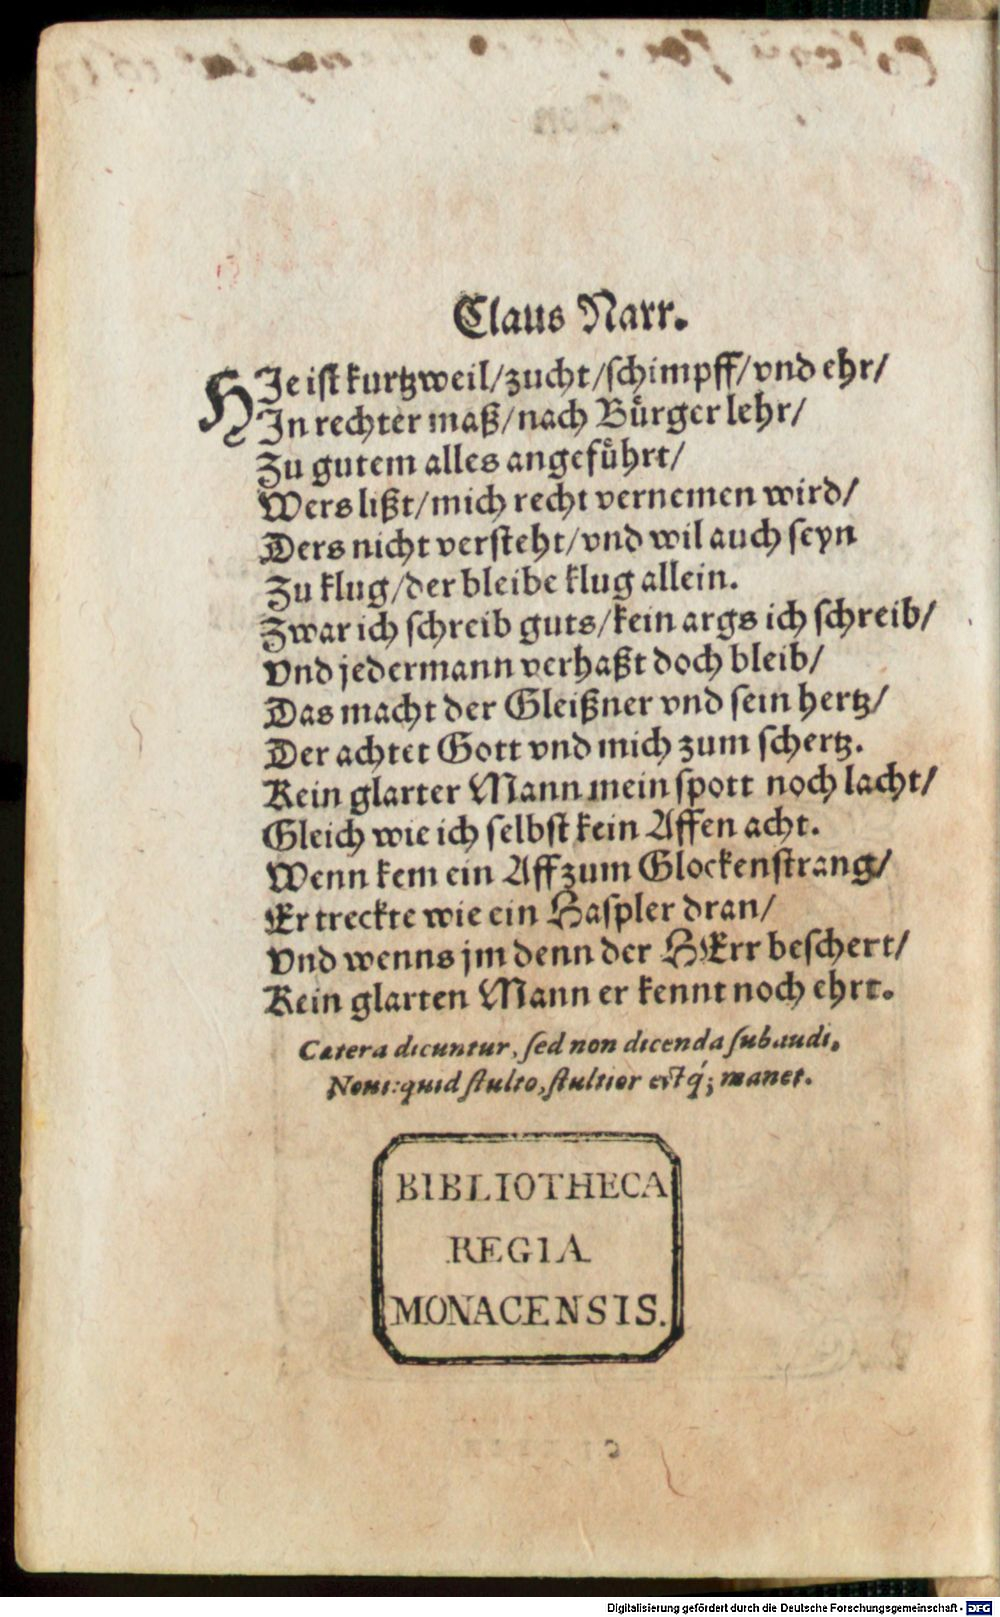 Claus Narr.
HJe ist kurtzweil/zucht/schimpff/vnd ehr/
Jn rechter maß/nach Bürger lehr/
Zu gutem alles angeführt/
Wers lißt/mich recht vernemen wird/
Ders nicht versteht/vnd wil auch seyn
Zu klug/der bleibe klug allein.
Zwar ich schreib guts/kein args ich schreib/
Vnd jedermann verhaßt doch bleib/
Das macht der Gleißner vnd sein hertz/
Der achtet Gott vnd mich zum schertz.
Kein glarter Mann mein spott noch lacht/
Gleich wie ich selbst kein Affen acht.
Wenn kem ein Aff zum Glockenstrang/
Er treckte wie ein Haspler dran/
Vnd wenns jm denn der HErr beschert/
Kein glarten Mann er kennt noch ehrt.
Cætera dicuntur, sed non dicenda subaudi,
Noui: quid stulto, stultior estq́; manet.
BIBLIOTHECA
REGIA
MONACENSIS.
Digitalisierung gefördert durch die Deutsche Forschungsgemeinschaft - DFG